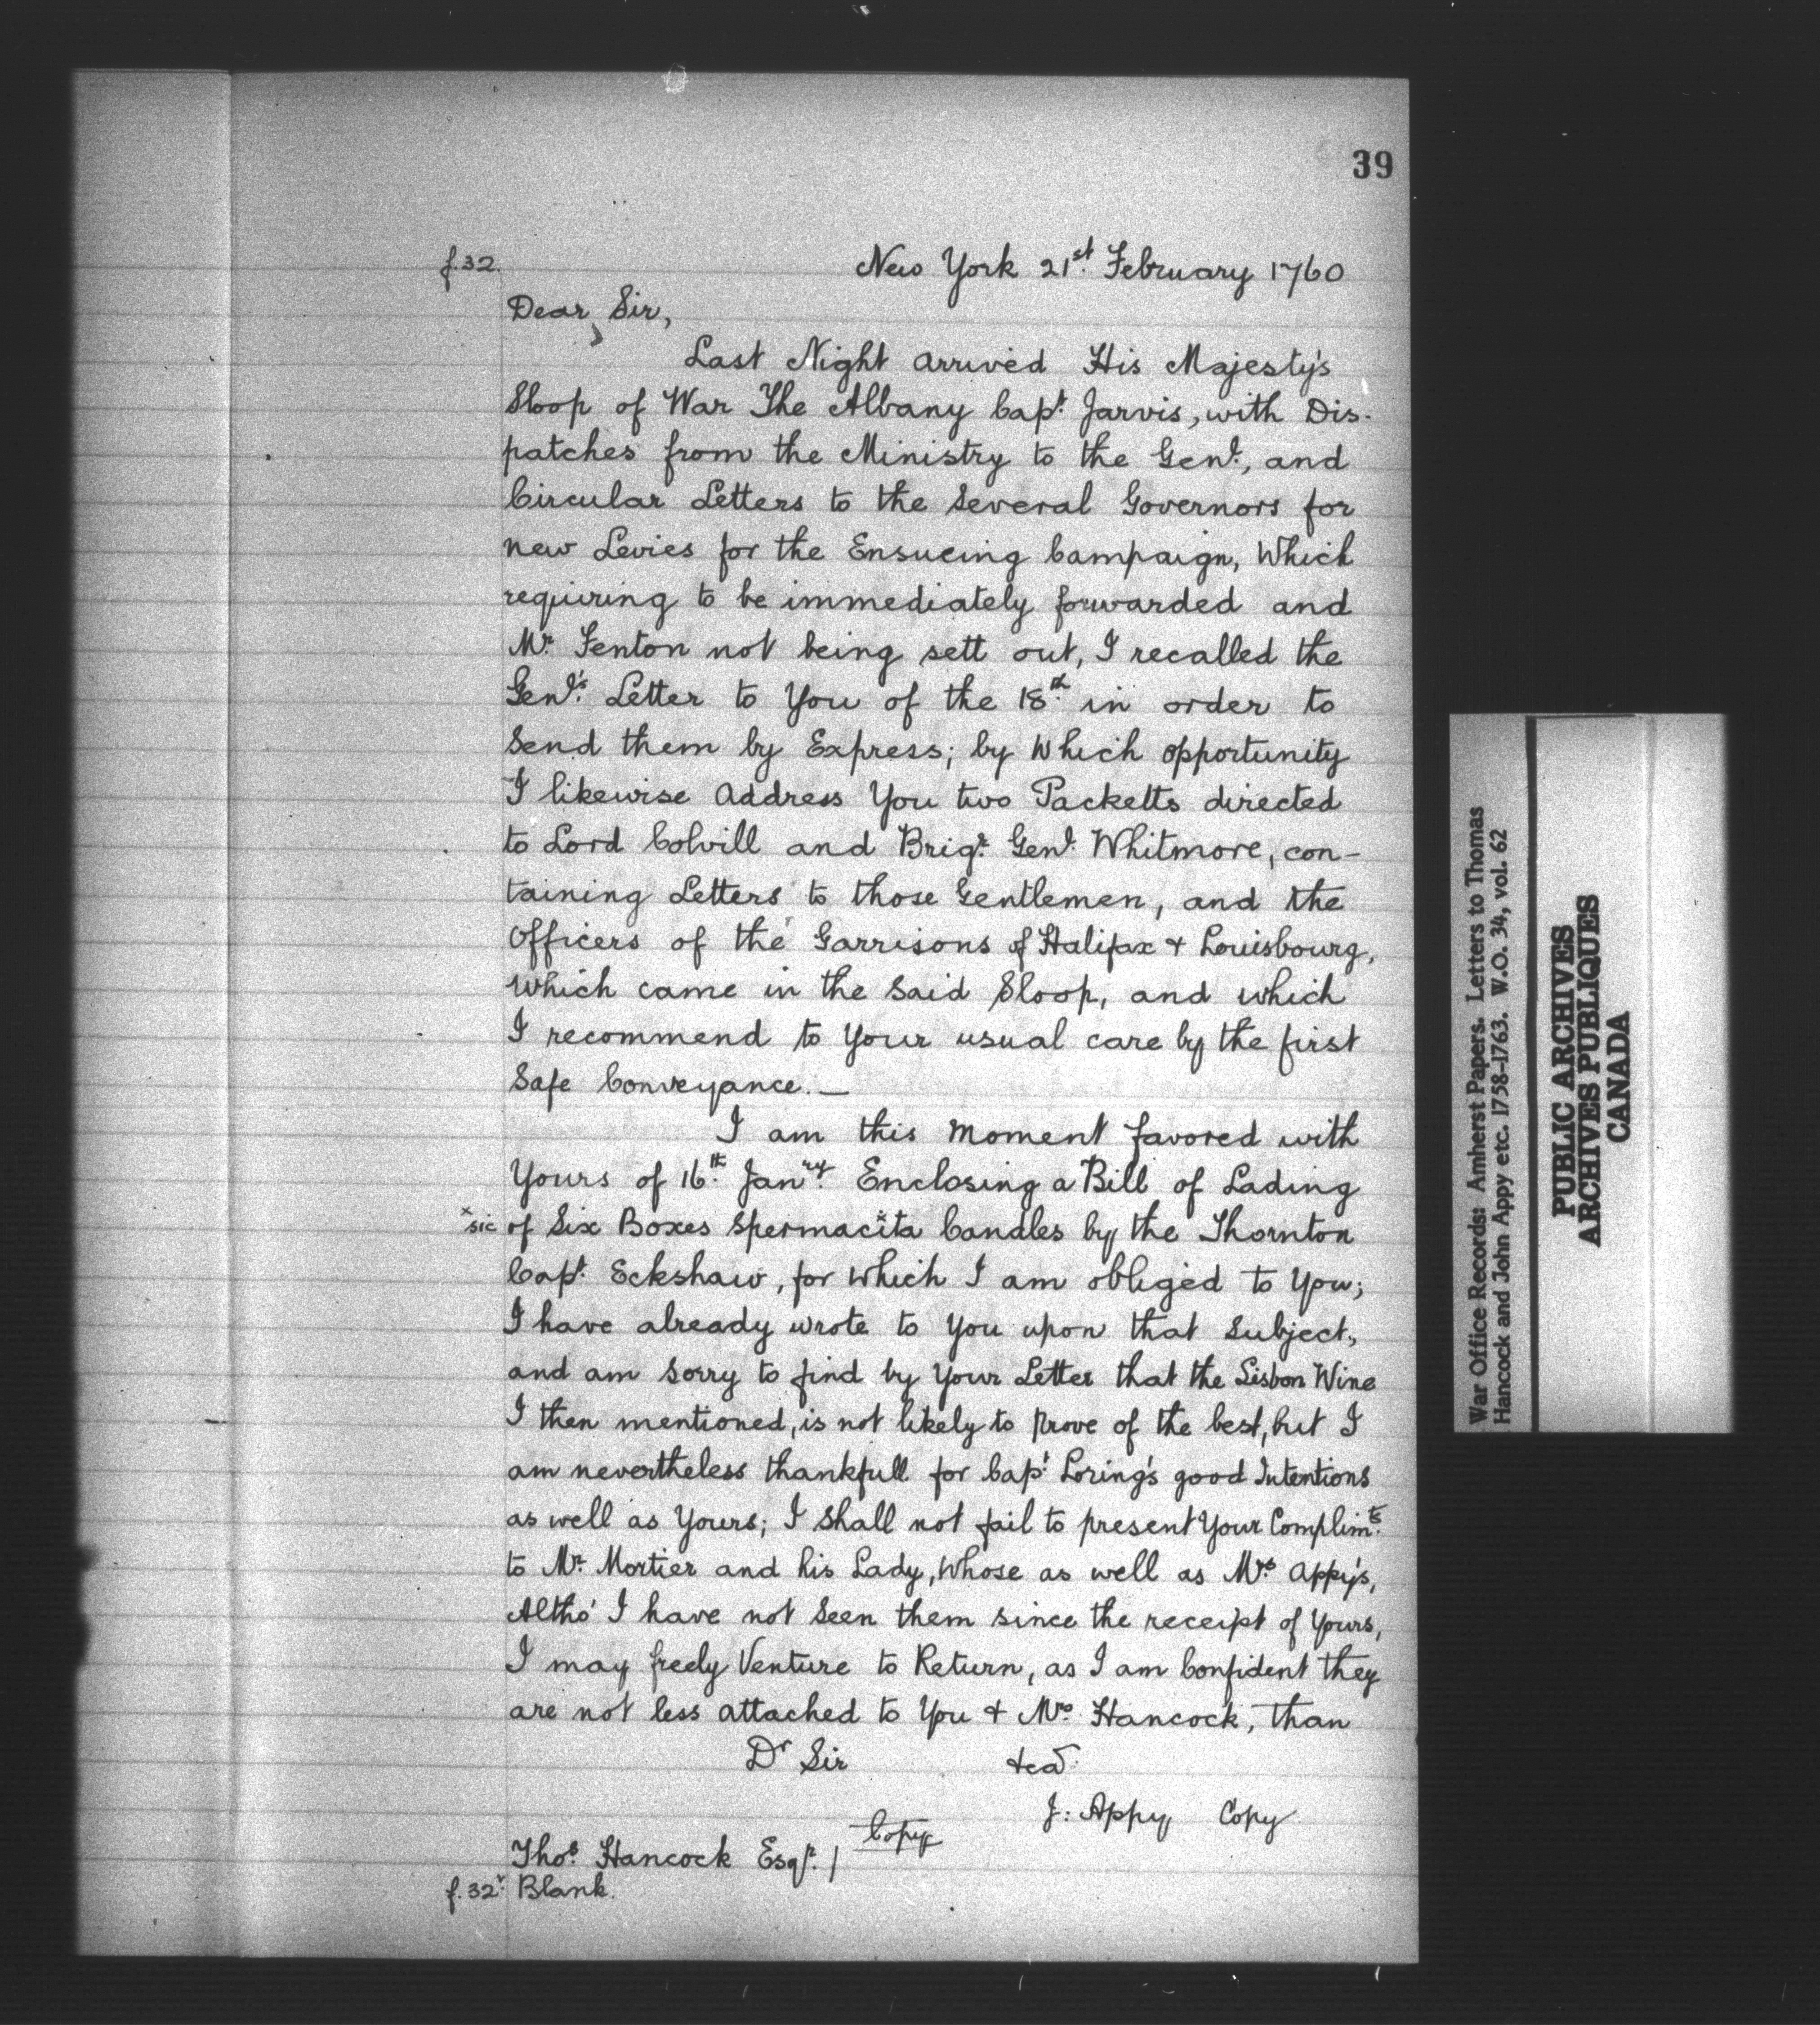 39
f.32.
New York 21st. February 1760
Dear Sir,
Last Night arrived His Majesty's
Sloop of War The Albany Capt. Jarvis, with Dis-
patches from the Ministry to the Genl., and
Circular Letters to the Several Governors for
new Levies for the Ensueing Campaign, Which
requiring to be immediately forwarded and
Mr. Fenton not being sett out, I recalled the
Genl's. Letter to You of the 18th. in order to
Send them by Express; by Which opportunity
I likewise Address You two Packetts directed
to Lord Colvill and Brigr. Genl. Whitmore, con-
taining Letters to those Gentlemen, and the
Officers of the Garrisons of Halifax & Louisbourg,
Which came in the Said Sloop, and which
I recommend to Your usual care by the first
Safe Conveyance. —
I am this Moment favored with
Yours of 16th. Janry. Enclosing a Bill of Lading
x sic of Six Boxes Spermacita x Candles by the Thornton
Capt. Eckshaw, for Which I am obliged to You;
I have already wrote to You upon that Subject,
and am Sorry to find by Your Letter that the Lisbon Wine
I then mentioned, is not likely to prove of the best, but I
am nevertheless thankfull for Capt. Loring's good Intentions
as well as Yours; I Shall not fail to present Your Complimts.
to Mr. Mortier and his Lady, Whose as well as Mrs. Appy's,
Altho' I have not Seen them since the receipt of Yours,
I may freely Venture to Return, as I am Confident they
are not less attached to You & Mrs. Hancock, than
Dr Sir &ca.
J: Appy Copy
Copy
Thos. Hancock Esqr. /
f.32v. Blank.
War Office Records: Amherst Papers. Letters to Thomas
Hancock and John Appy etc. 1758-1763. W.O. 34, vol. 62
PUBLIC ARCHIVES
ARCHIVES PUBLIQUES
CANADA